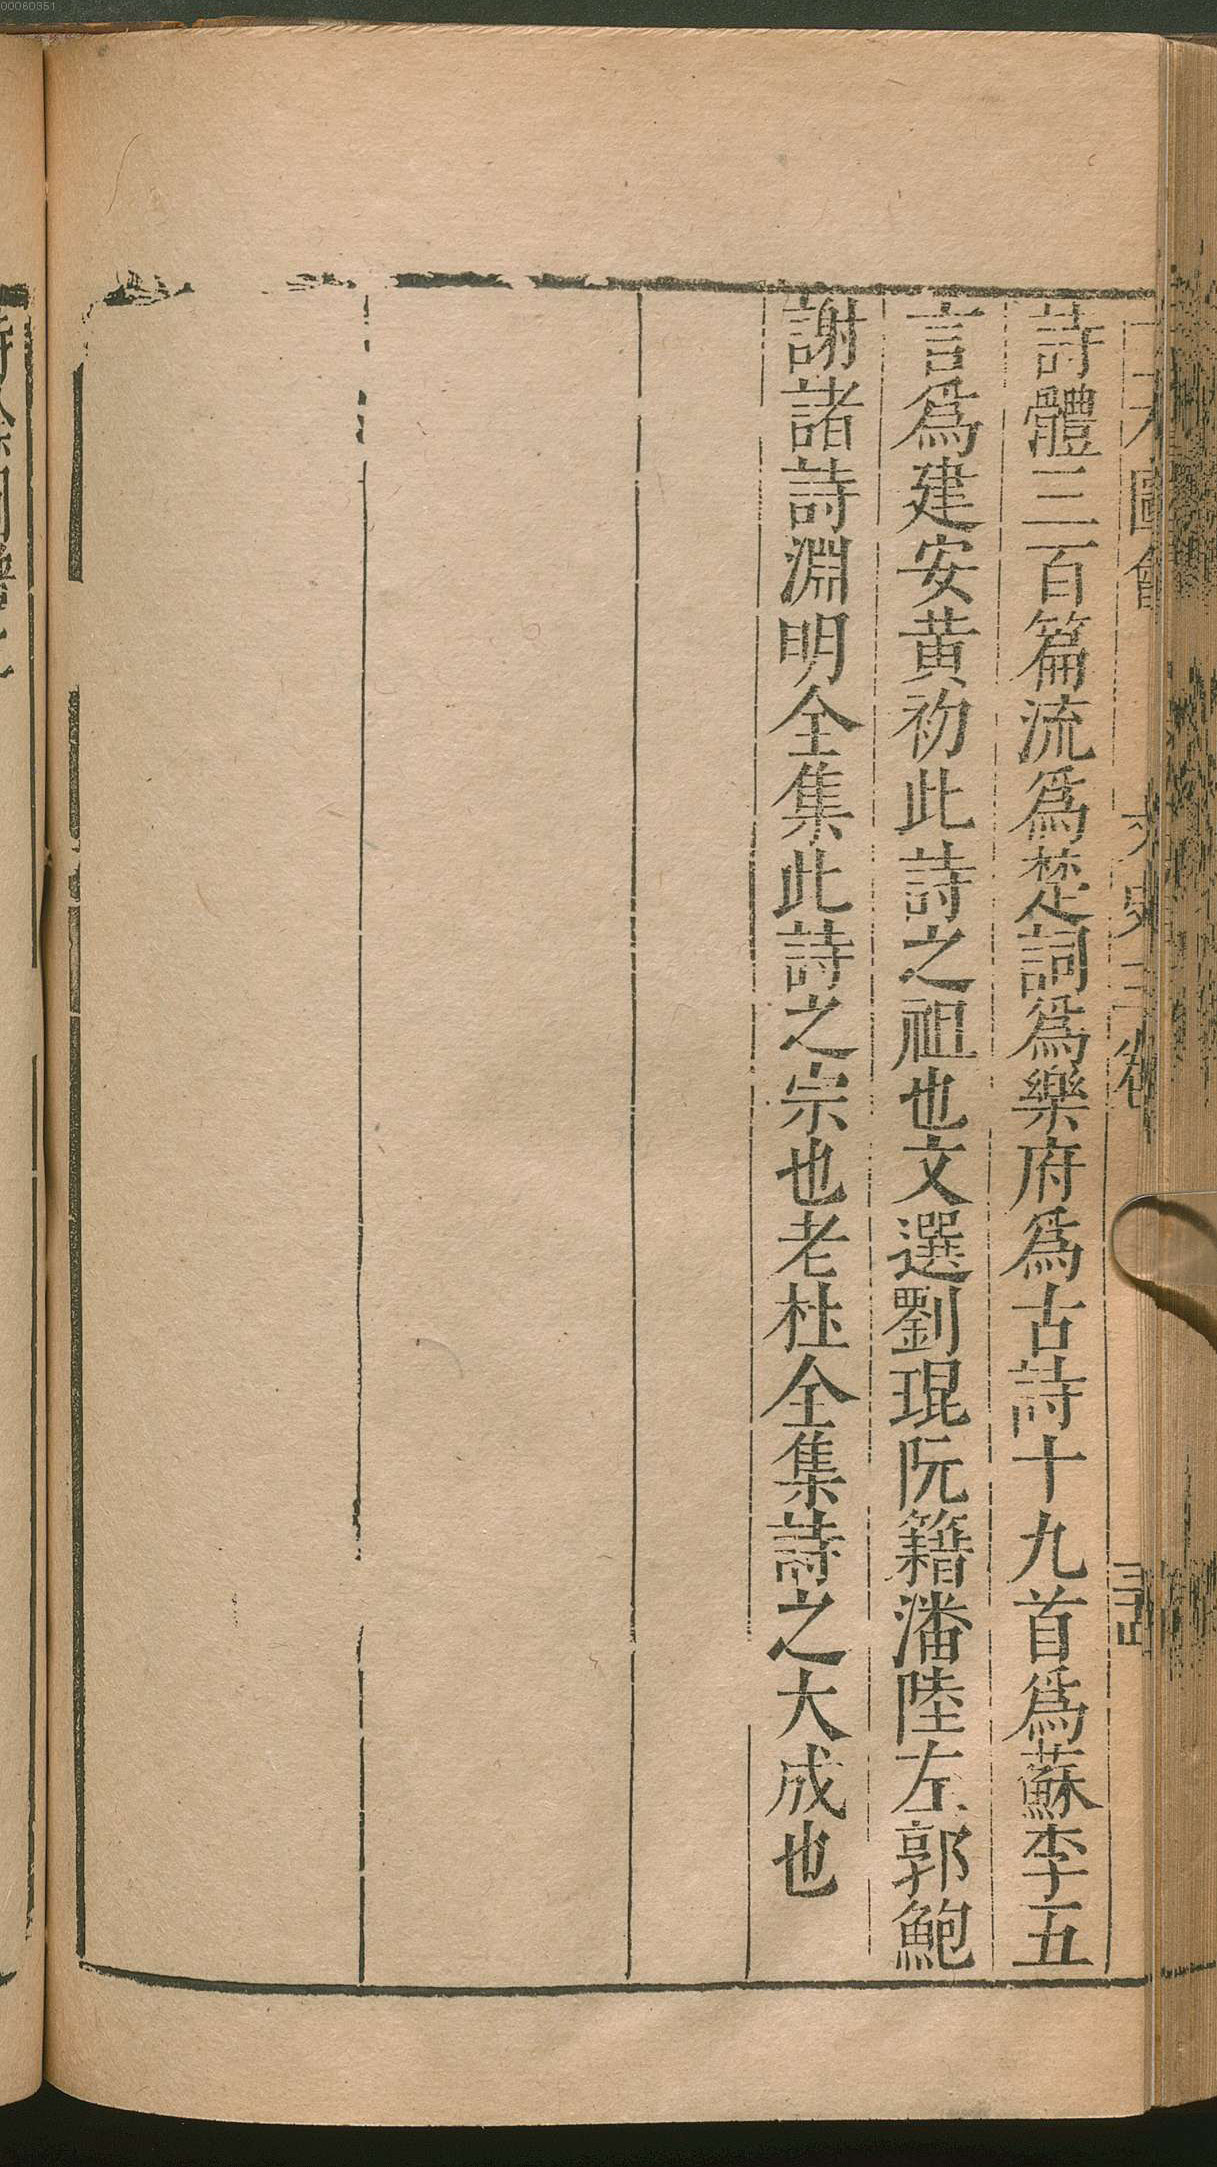 詩體三百篇流爲楚詞爲樂府爲古詩十九首爲蘇李五
言爲建安黄初此詩之祖也文選劉琨阮籍潘陸左郭鮑
謝諸詩淵明全集此詩之宗也老杜全集詩之大成也
00060351